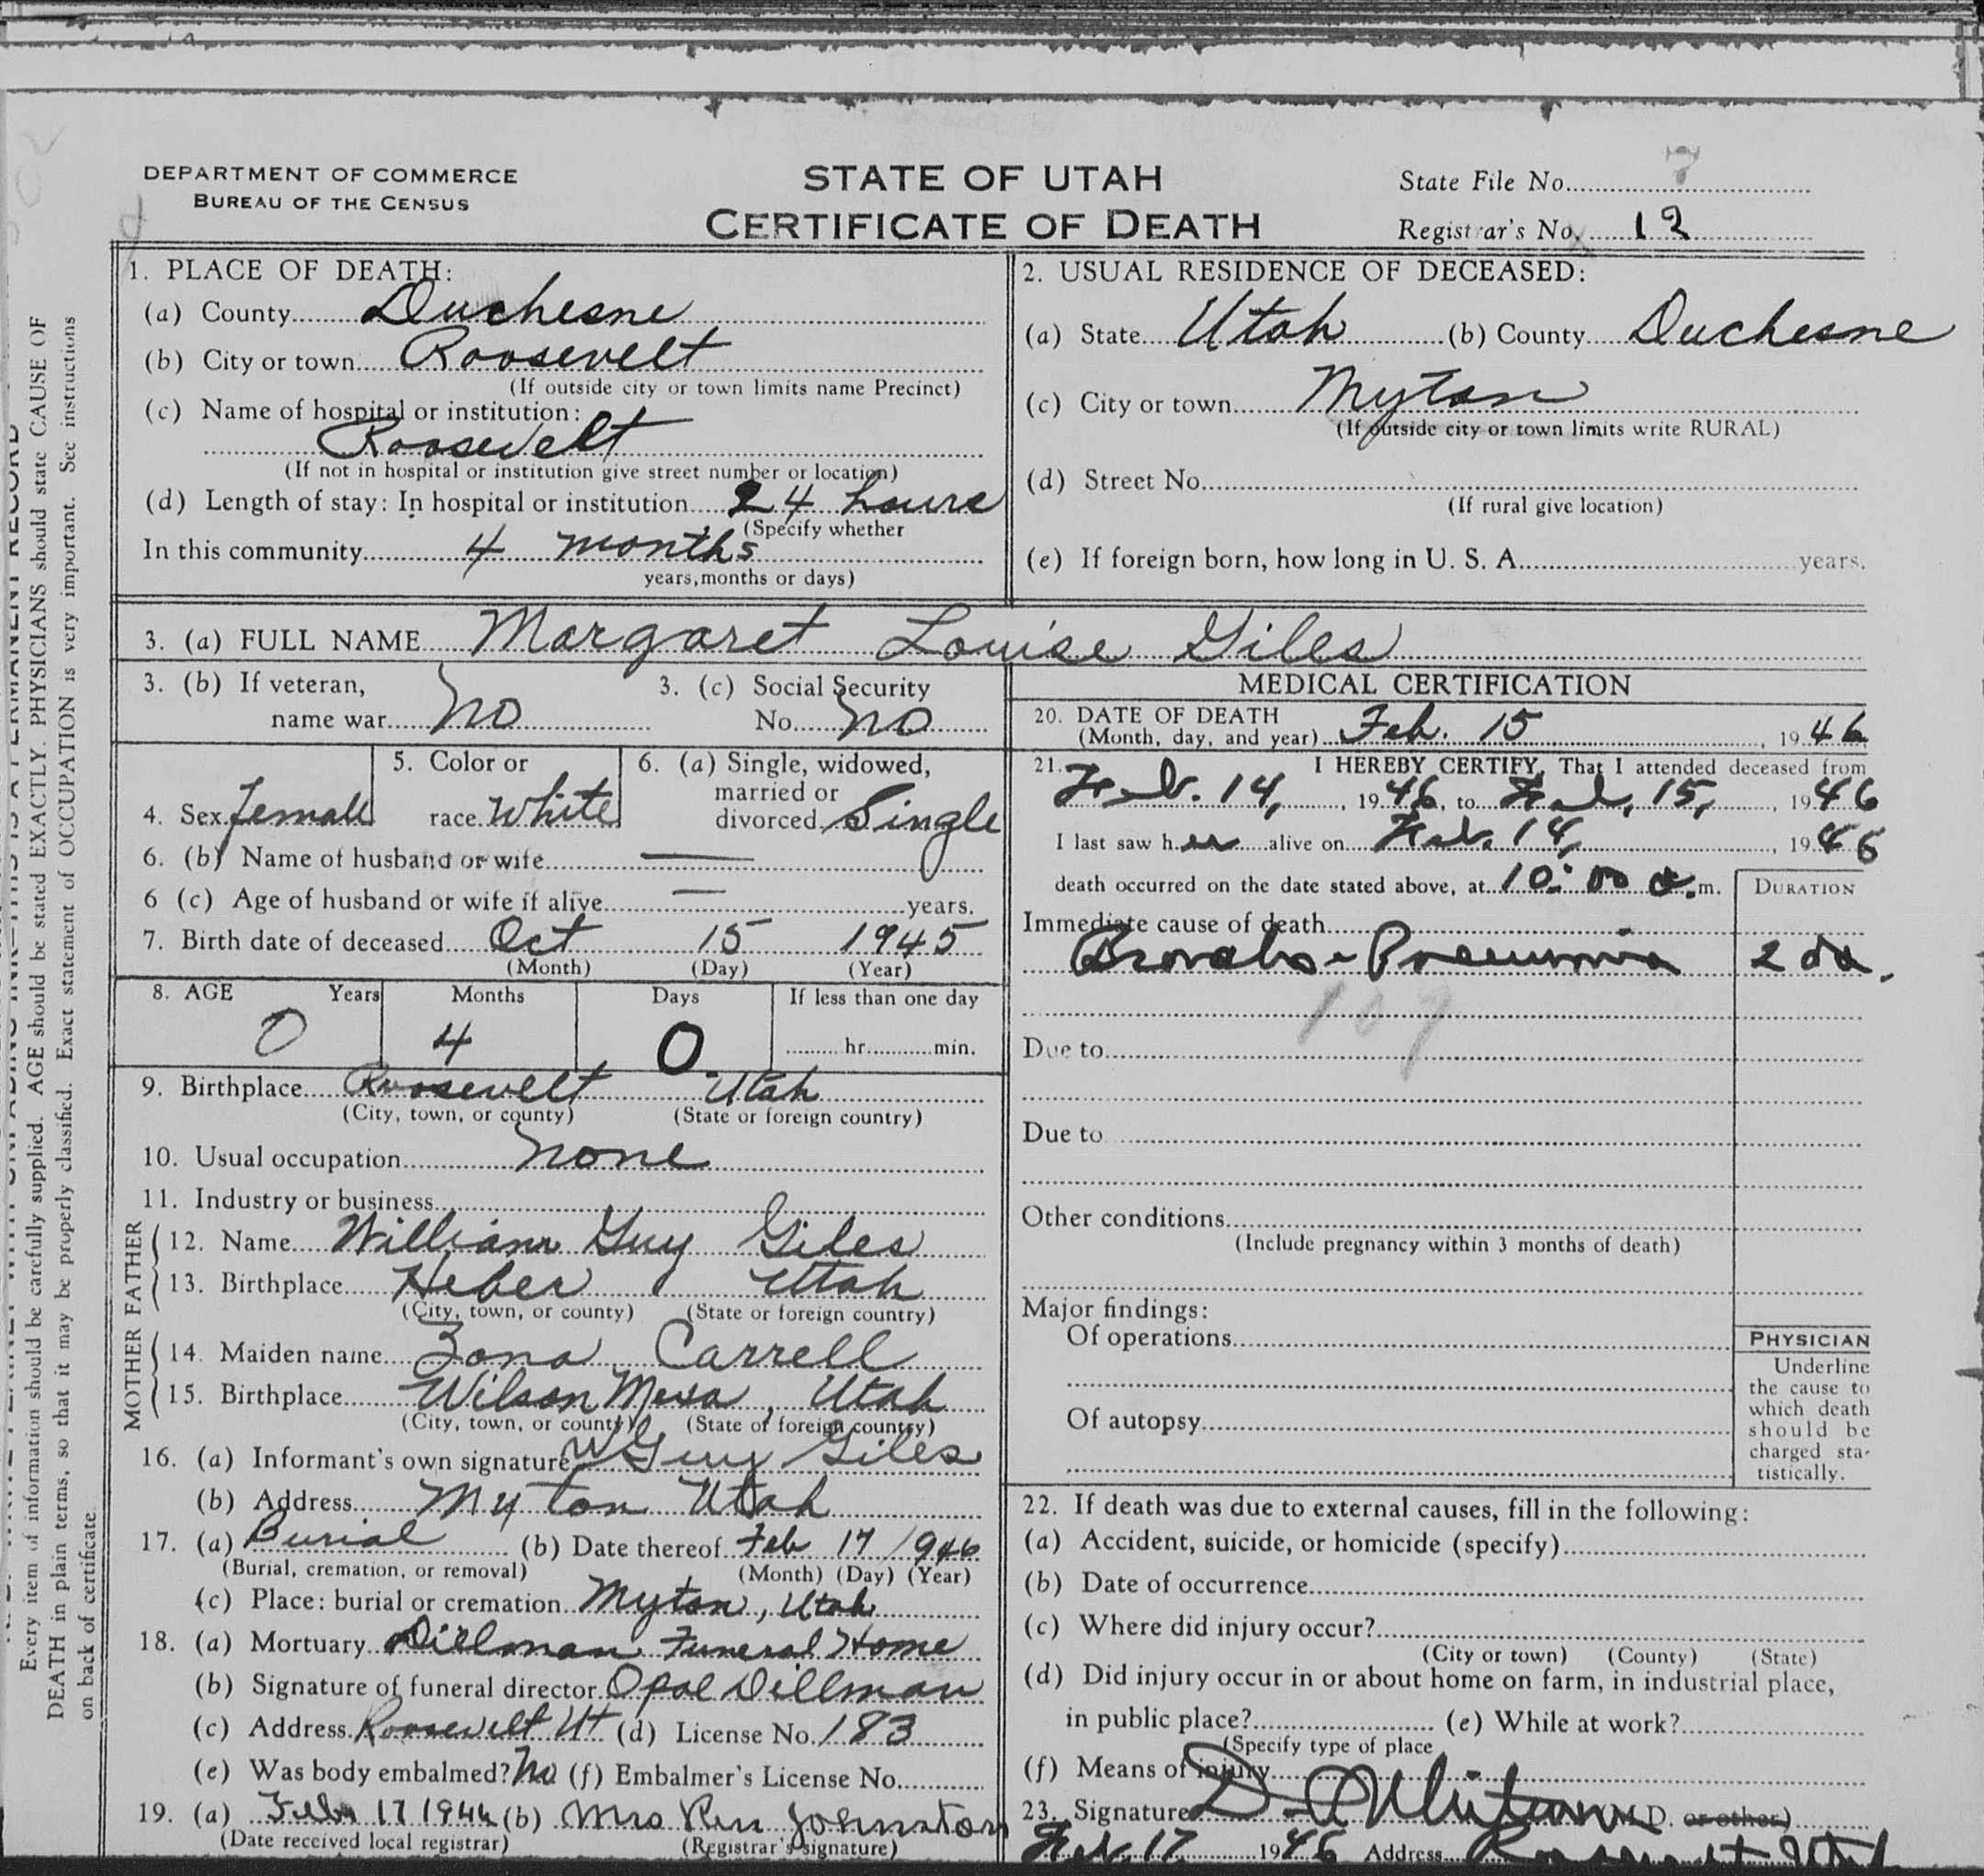 DEPARTMENT OF COMMERCE
BUREAU OF THE CENSUS
STATE OF UTAH
CERTIFICATE OF DEATH
State File No. 7
Registrar's No. 12
1. PLACE OF DEATH:
(a) County Duchesne
(b) City or town Roosevelt
(If outside city or town limits name Precinct)
(c) Name of hospital or institution:
Roosevelt
(If not in hospital or institution give street number or location)
(d) Length of stay: In hospital or institution 24 hours
(Specify whether
In this community 4 months
years, months or days)
2. USUAL RESIDENCE OF DECEASED:
(a) State Utah (b) County Duchesne
(c) City or town Myton
(If outside city or town limits write RURAL)
(d) Street No.
(If rural give location)
(e) If foreign born, how long in U. S. A. years.
3. (a) FULL NAME Margaret Louise Giles
3. (b) If veteran,
name war no
3. (c) Social Security
No. no
4. Sex Female
5. Color or
race White
6. (a) Single, widowed,
married or
divorced Single
6. (b) Name of husband or wife —
6 (c) Age of husband or wife if alive — years.
7. Birth date of deceased Oct 15 1945
(Month) (Day) (Year)
8. AGE Years Months Days If less than one day
0 4 0 hr. min.
9. Birthplace Roosevelt Utah
(City, town, or county) (State or foreign country)
10. Usual occupation none
11. Industry or business
FATHER
12. Name William Guy Giles
13. Birthplace Heber Utah
(City, town, or county) (State or foreign country)
MOTHER
14. Maiden name Zona Carrell
15. Birthplace Wilson Mesa, Utah
(City, town, or county) (State of foreign country)
16. (a) Informant's own signature W Guy Giles
(b) Address Myton Utah
17. (a) Burial (b) Date thereof Feb 17 1946
(Burial, cremation, or removal) (Month) (Day) (Year)
(c) Place: burial or cremation Myton, Utah
18. (a) Mortuary Dillman Funeral Home
(b) Signature of funeral director Opal Dillman
(c) Address Roosevelt Ut (d) License No. 183
(e) Was body embalmed? No (f) Embalmer's License No.
19. (a) Feb 17 1946 (b) Mrs Johnston
(Date received local registrar) (Registrar's signature)
MEDICAL CERTIFICATION
20. DATE OF DEATH
(Month, day, and year) Feb. 15, 1946
21. I HEREBY CERTIFY, That I attended deceased from
Feb. 14, 1946, to Feb. 15, 1946
I last saw her alive on Feb. 14, 1946
death occurred on the date stated above, at 10:00 a.m.
DURATION
Immediate cause of death
Broncho-Pneumonia 2 da.
107
Due to
Due to
Other conditions
(Include pregnancy within 3 months of death)
Major findings:
Of operations
Of autopsy
PHYSICIAN
Underline
the cause to
which death
should be
charged sta-
tistically.
22. If death was due to external causes, fill in the following:
(a) Accident, suicide, or homicide (specify)
(b) Date of occurrence
(c) Where did injury occur?
(City or town) (County) (State)
(d) Did injury occur in or about home on farm, in industrial place,
in public place? (e) While at work?
(Specify type of place
(f) Means of injury
23. Signature M.D. or other)
Feb. 17 1946 Address Roosevelt Utah
Every item of information should be carefully supplied. AGE should be stated EXACTLY. PHYSICIANS should state CAUSE OF
DEATH in plain terms, so that it may be properly classified. Exact statement of OCCUPATION is very important. See instructions
on back of certificate.